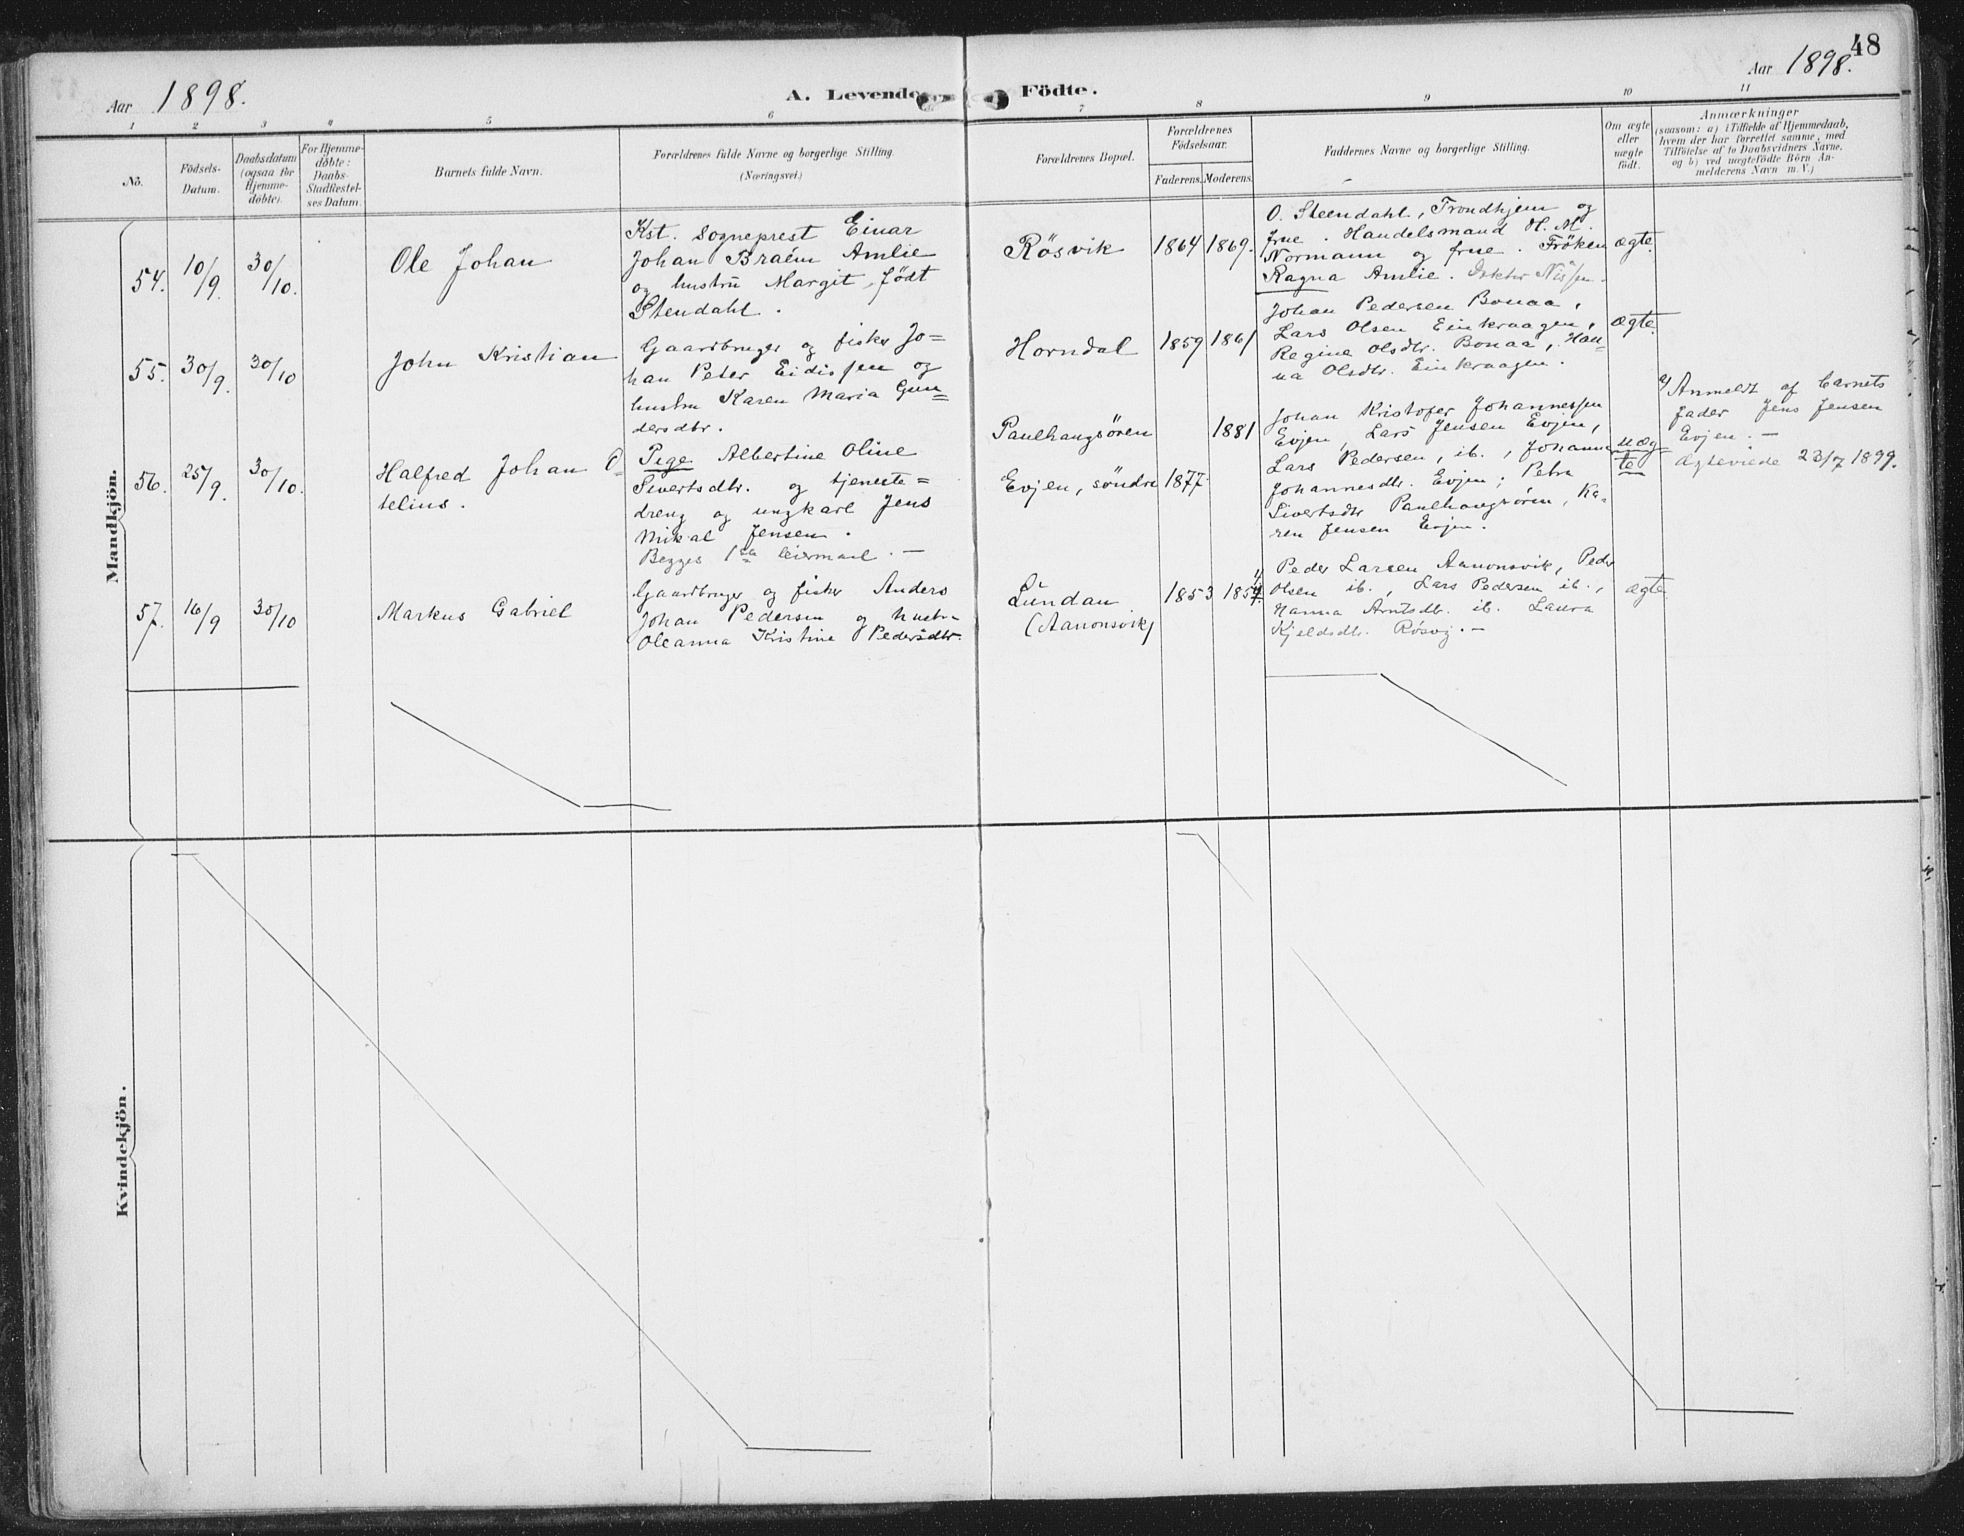 48
Aar 1898.
A. Levende Födte.
Aar 1898.
1 2 3 4 5 6 7 8 9 10 11
No.
Födsels-
Datum.
Daabsdatum
(ogsaa för
Hjemme-
döbte).
For Hjemme-
döbte:
Daabs-
Stadfæstel-
ses Datum.
Barnets fulde Navn.
Forældrenes fulde Navne og borgerlige Stilling.
(Næringsvei.)
Forældrenes Bopæl.
Forældrenes
Födselsaar.
Faderens. Moderens.
Faddernes Navne og borgerlige Stilling.
Om ægte
eller
uægte
födt.
Anmærkninger
(saasom: a) i Tilfælde af Hjemmedaab,
hvem der har forrettet samme, med
Tilföielse af to Daabsvidners Navne,
og b) ved uægtefödte Börn An-
melderens Navn m. V.)
Mandkjön.
54. 10/9. 30/10.
Ole Johan
Kst. Sogneprest Einar
Johan Braëm Amlie
og hustru Margit, født
Stendahl.
Rösvik
1864 1869.
O. Steendahl, Trondhjem og
frue. Handelsmand H. M.
Normann og frue. Fröken
Ragna Amlie. Doktor Nissen.
ægte.
55. 30/9. 30/10
John Kristian
Gaardbruger og fisker Jo=
han Peter Eidissen og
hustru Karen Maria Gun=
dersdtr.
Horndal
1859 1861
Johan Pedersen Bonaa,
Lars Olsen Einkraagen,
Regine Olsdtr. Bonaa, Han=
na Olsdtr. Einkraagen.
ægte.
56. 25/9. 30/10.
Halfred Johan O=
telius.
Pige Albertine Oline
Sivertsdtr. og tjeneste=
dreng og ungkarl Jens
Mikal Jensen.
Begges 1ste leiermaal. —
Paulhaugsören 1881
Evjen, söndre 1877.
Johan Kristofer Johannessen
Evjen, Lars Jensen Evjen,
Lars Pedersen, ib., Johanna
Johannesdtr. Evjen; Petra
Sivertsdtr Paulhaugsören, Ka-
ren Jensen Evjen.
uæg
te
a/ Anmeldt af barnets
fader Jens Jensen
Evjen. —
Ægteviede 23/7 1899.
57. 16/9 30/10
Markus Gabriel
Gaardbruger og fisker Anders
Johan Pedersen og hustru
Oleanna Kristine Pedersdtr.
Lundan
(Aanonsvik)
1853 1854
Peder Larsen Aanonsvik, Peder
Olsen ib., Lars Pedersen ib.,
Hanna Arntsdtr. ib. Laura
Kjeldsdtr. Rösvig. —
ægte
Kvindekjön.